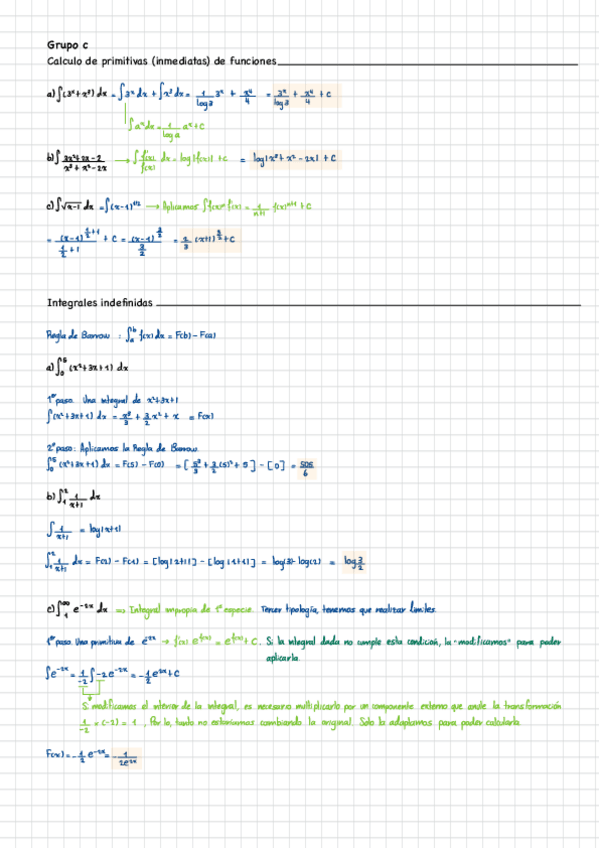 Grupo c
Calculo de primitivas (inmediatas) de funciones
a) ∫(3ˣ+x³) dx = ∫3ˣ dx + ∫x³ dx = 1/log3 3ˣ + x⁴/4 = 3ˣ/log3 + x⁴/4 + C
∫aˣ dx = 1/log a aˣ + C
b) ∫ 3x²+2x-2 / x³+x²-2x → ∫ f'(x)/f(x) dx = log|f(x)| + C = log|x³+x²-2x| + C
c) ∫√x-1 dx = ∫(x-1)^1/2 → Aplicamos ∫f(x)ⁿ f'(x) = 1/n+1 f(x)ⁿ⁺¹ + C
= (x-1)^(1/2+1) / (1/2+1) + C = (x-1)^(3/2) / (3/2) = 2/3 (x+1)^(3/2) + C
Integrales indefinidas
Regla de Barrow : ∫ₐᵇ f(x) dx = F(b) - F(a)
a) ∫₀⁵ (x²+3x+1) dx
1º paso. Una integral de x²+3x+1
∫(x²+3x+1) dx = x³/3 + 3/2 x² + x = F(x)
2º paso: Aplicamos la Regla de Barrow
∫₀⁵ (x²+3x+1) dx = F(5) - F(0) = [5³/3 + 3/2 (5)² + 5] - [0] = 505/6
b) ∫₁² 1/x+1 dx
∫ 1/x+1 = log|x+1|
∫₁² 1/x+1 dx = F(2) - F(1) = [log|2+1|] - [log|1+1|] = log(3) - log(2) = log 3/2
c) ∫₁^∞ e^-2x dx ⇒ Integral impropia de 1ª especie. Tener tipología, tenemos que realizar límites.
1º paso. Una primitiva de e^2x → f'(x) e^f(x) = e^f(x) + C. Si la integral dada no cumple esta condición, la "modificamos" para poder
aplicarla.
∫e^-2x = 1/-2 ∫-2e^-2x = -1/2 e^2x + C
Si modificamos el interior de la integral, es necesario multiplicarlo por un componente externo que anule la transformación
1/-2 × (-2) = 1 , Por lo tanto no estaríamos cambiando la original. Solo la adaptamos para poder calcularla.
F(x) = -1/2 e^-2x = -1/2e^2x